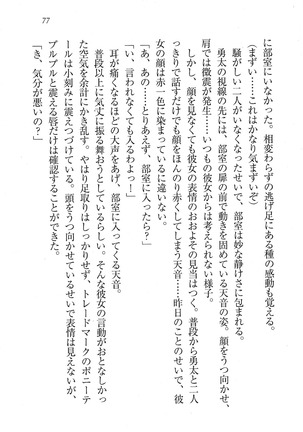 77
に部室にいなかった。相変わらずの逃げ足にある種の感動も覚える。
(まずい……これはかなり気まずいぞ)
騒がしい二人がいなくなったせいで、部室は妙な静けさに包まれる。
勇太の視線の先には、部室の扉の前で動きを固めている天音の姿。顔をうつ向かせ、
肩では微震が発生――いつもの彼女からは考えられない様子。
しかし、顔を見なくても彼女の表情のおおよその見当はつく。普段から勇太と二人
っきりで話すだけでも顔をほんのり赤くしてしまう天音……昨日のことのせいで、彼
女の顔は赤一色に染まっているに違いない。
「あ、あの……とりあえず、部室に入ったら?」
「い、言われなくても入るわよっ!」
耳が痛くなるほどの大声をあげ、部室に入ってくる天音。
普段以上に気丈に振る舞おうとしているらしい。そんな彼女の言動がおとなしかっ
た空気を余計にかき乱す。やはり足取りはしっかりせず、トレードマークのポニーテ
ールは小刻みに震えつづけている。頭をうつ向かせているせいで表情は見えないが、
プルプルと震える唇だけは確認することができた。
「き、気分が悪いの?」